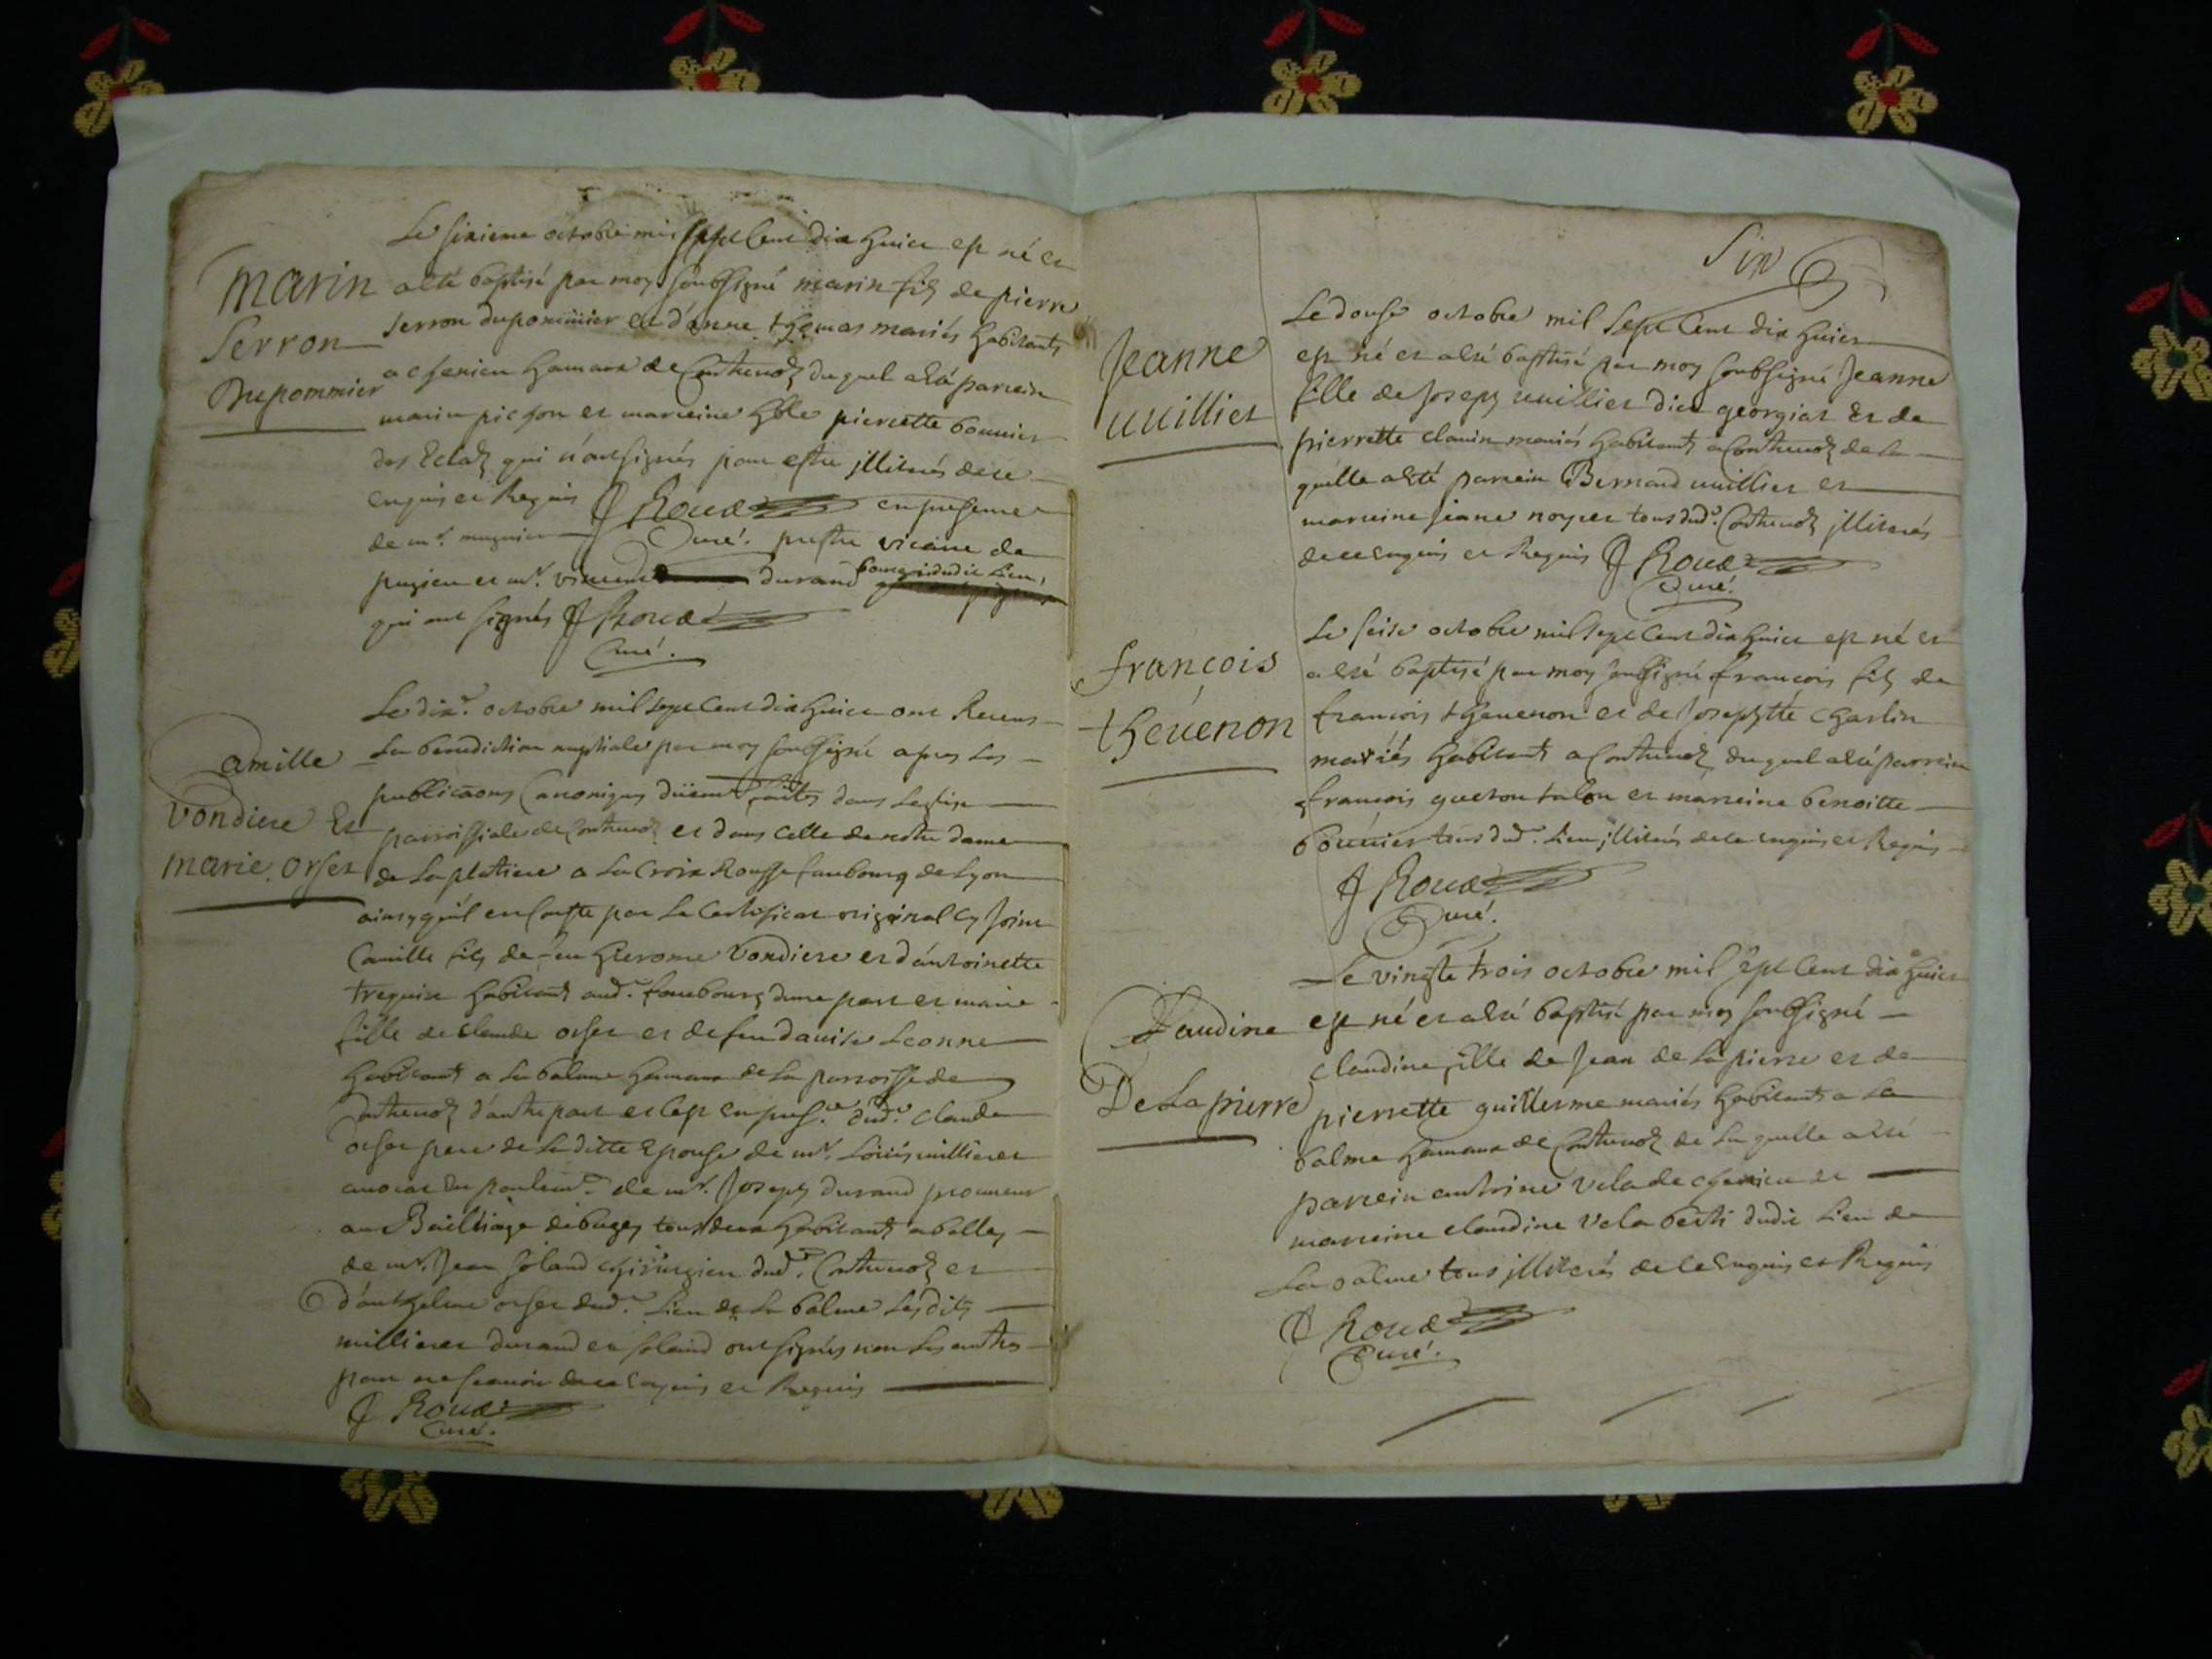 Marin
Serron
Dupommier
Le sixieme octobre mil sept cent dix huict est né et
a esté baptisé par moy soubsigné marin fils de pierre
serron dupommier et d'anne thomas mariés habitants
a chenieu hameau de Conthrevoz duquel a esté parrein
marin pichon et marreine hble pierrette bonnier
des Eclaz qui n'ont signés pour estre jlliterés de ce
enquis et Requis J Roux en presence
de mr. mugnier Curé. prestre vicaire de
pugieu et mr. vincent durand bourgeois dudit Lieu,
qui ont signés J Roux
Curé.
Camille
Vondiere Et
marie. orset
Le dixe. octobre mil sept cent dix huict ont Receus
La benediction nuptiale par moy soubsigné apres Les
publicaons Canoniques düemt. faites dans Leglise
parroissiale de Conthrevoz et dans celle de notre dame
de La platiere a La Croix Rousse faubourg de Lyon
ainsy qu'il en conste par Le Certificat original cy joint
Camille fils de feu hierome Vondiere et d'antoinette
treguin habitant aud. faubourg d'une part et marie
fille de claude orset et de feu Leonne
habitant a La balme hameau de La parroisse de
Conthrevoz d'autre part et c'est en prese. dud. claude
orset pere de Laditte Epouse de mr. Loüis millieret
avocat en parlemt. de mr. Joseph durand procureur
au Bailliage de bugey tous deux habitant a belley
de mr. Jean soland chirurgien dud. Conthrevoz et
d'anthelme orset dud. Lieu de La balme Lesdits
millieret durand et soland ont signés non Les autres
pour ne scavoir de ce enquis et Requis
J Roux
Curé.
Six
Jeanne
vuillier
Le douse octobre mil sept cent dix huict
est né et a esté baptisé par moy soubsigné Jeanne
fille de Joseph vuillier dict georgiat et de
pierrette clavin mariés habitants a Conthrevoz de la
quelle a esté parrein Bernard vuillier et
marreine jeane noyret tous dud. Conthrevoz jlliterés
de ce enquis et Requis J Roux
Curé.
françois
thevenon
Le seise octobre mil sept cent dix huict est né et
a esté baptisé par moy soubsigné francois fils de
francois thevenon et de Josephtte charlin
mariés habitants a Conthrevoz duquel a esté parrein
francois et marreine benoitte
bonnier tous dud. Lieu jlliterés de ce enquis et Requis
J Roux
Curé.
Claudine
De La pierre
Le vingte trois octobre mil sept cent dix huict
est né et a esté baptisé par moy soubsigné
claudine fille de Jean de La pierre et de
pierrette guillerme mariés habitants a La
balme hameau de Conthrevoz de La quelle a esté
parrein antoine vela de chenieu et
marreine claudine vela dudit Lieu de
La balme tous jlliterés de ce enquis et Requis
J Roux
Curé.